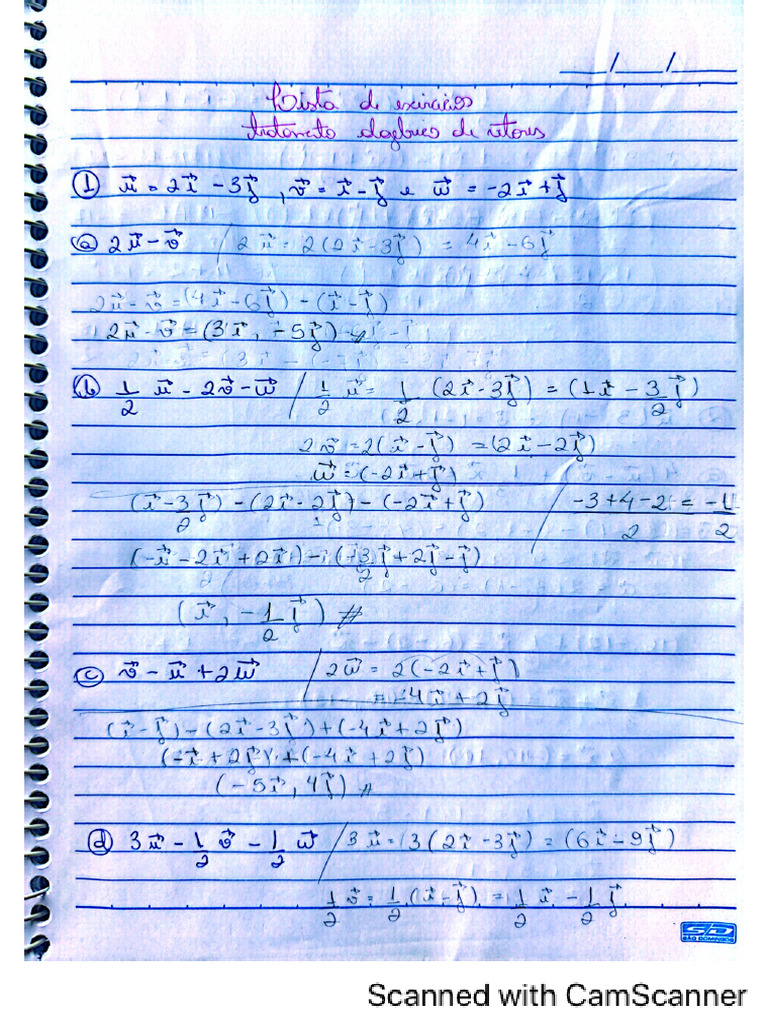 ___/___/___
Lista de exercícios
tratamento algébrico de vetores
① u⃗ = 2i⃗ - 3j⃗ , v⃗ = i⃗ - j⃗ e w⃗ = -2i⃗ + j⃗
ⓐ 2u⃗ - v⃗ / 2u⃗ = 2(2i⃗ - 3j⃗) = 4i⃗ - 6j⃗
2u⃗ - v⃗ = (4i⃗ - 6j⃗) - (i⃗ - j⃗)
2u⃗ - v⃗ = (3i⃗, -5j⃗)
ⓑ 1/2 u⃗ - 2v⃗ - w⃗ / 1/2 u⃗ = 1/2 (2i⃗ - 3j⃗) = (1i⃗ - 3/2 j⃗)
2v⃗ = 2(i⃗ - j⃗) = (2i⃗ - 2j⃗)
w⃗ = (-2i⃗ + j⃗)
(i⃗ - 3/2 j⃗) - (2i⃗ - 2j⃗) - (-2i⃗ + j⃗) / (-3+4-2)/2 = -1/2
(i⃗ - 2i⃗ + 2i⃗) - (-3/2 j⃗ + 2j⃗ - j⃗)
(i⃗, -1/2 j⃗) #
ⓒ v⃗ - u⃗ + 2w⃗ / 2w⃗ = 2(-2i⃗ + j⃗)
= -4i⃗ + 2j⃗
(i⃗ - j⃗) - (2i⃗ - 3j⃗) + (-4i⃗ + 2j⃗)
(-i⃗ + 2j⃗) + (-4i⃗ + 2j⃗)
(-5i⃗, 4j⃗) #
ⓓ 3u⃗ - 1/2 v⃗ - 1/2 w⃗ / 3u⃗ = (3(2i⃗ - 3j⃗) = (6i⃗ - 9j⃗)
1/2 v⃗ = 1/2 (i⃗ - j⃗) = 1/2 i⃗ - 1/2 j⃗
SD
SÃO DOMINGOS
Scanned with CamScanner